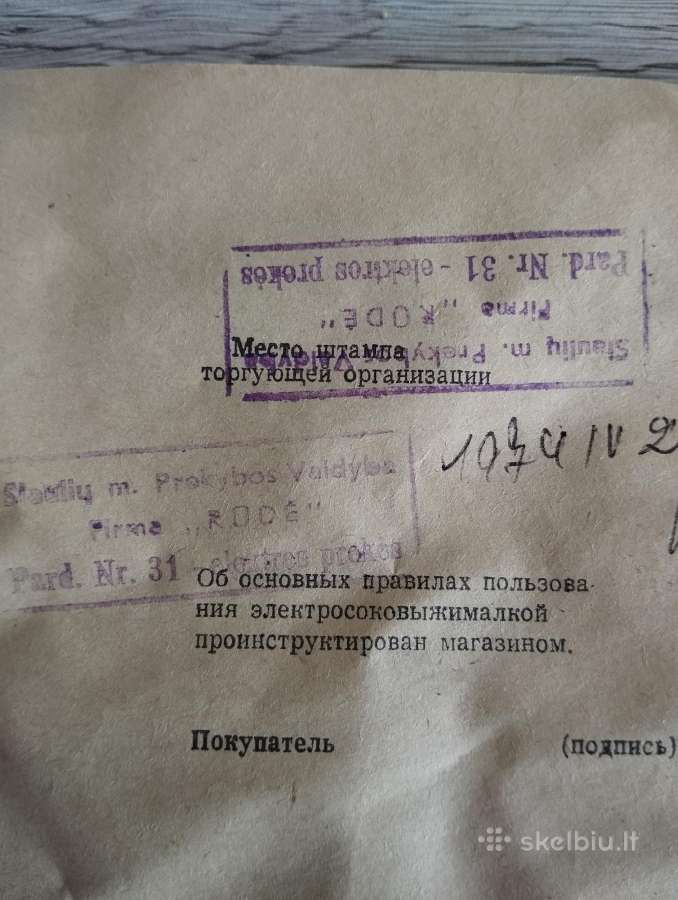 Pard. Nr. 31 - elektros prekės
Firma „RODĖ"
Šiaulių m. Prekybos Valdyba
Место штампа
торгующей организации
1974 IV 2
Šiaulių m. Prekybos Valdyba
Firma „RODĖ"
Pard. Nr. 31 - elektros prekės
Об основных правилах пользова-
ния электросоковыжималкой
проинструктирован магазином.
Покупатель (подпись)
skelbiu.lt